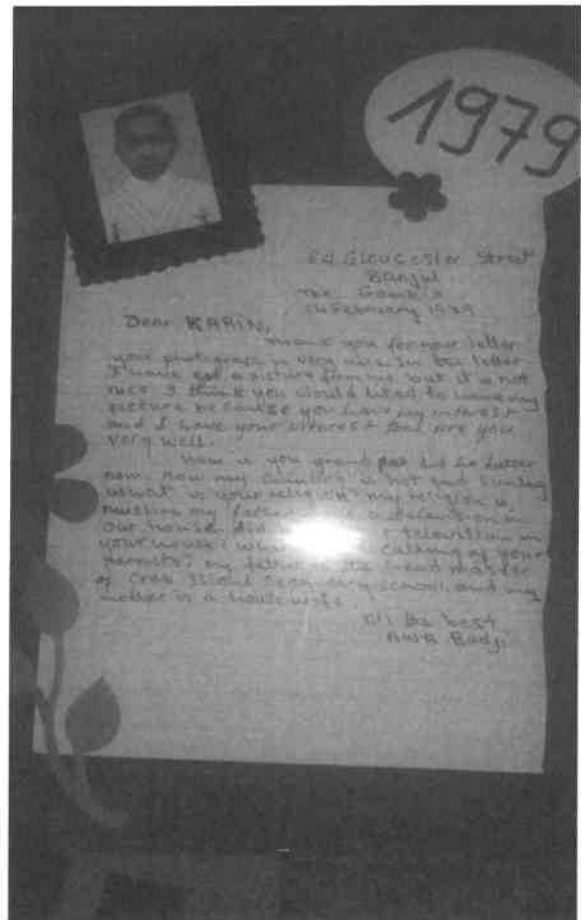 1979
Gloucester Street
Banjul
The Gambia
14 February 1979
Dear KARIN,
Thank you for your letter
your photograph is very nice in the letter
I have got a picture from me but it is not
nice I think you would liked to have my
picture because you have my interest
and I have your interest too are you
very well.
How is you grand pa is he better
now. How my country is hot and sunday
what is your religion? my religion is
muslim my father television in
our house. television in
your house? calling of your
parents? my father is the head master
of Crab Island Secondary school, and my
mother is a housewife.
All the best
Awa Badji